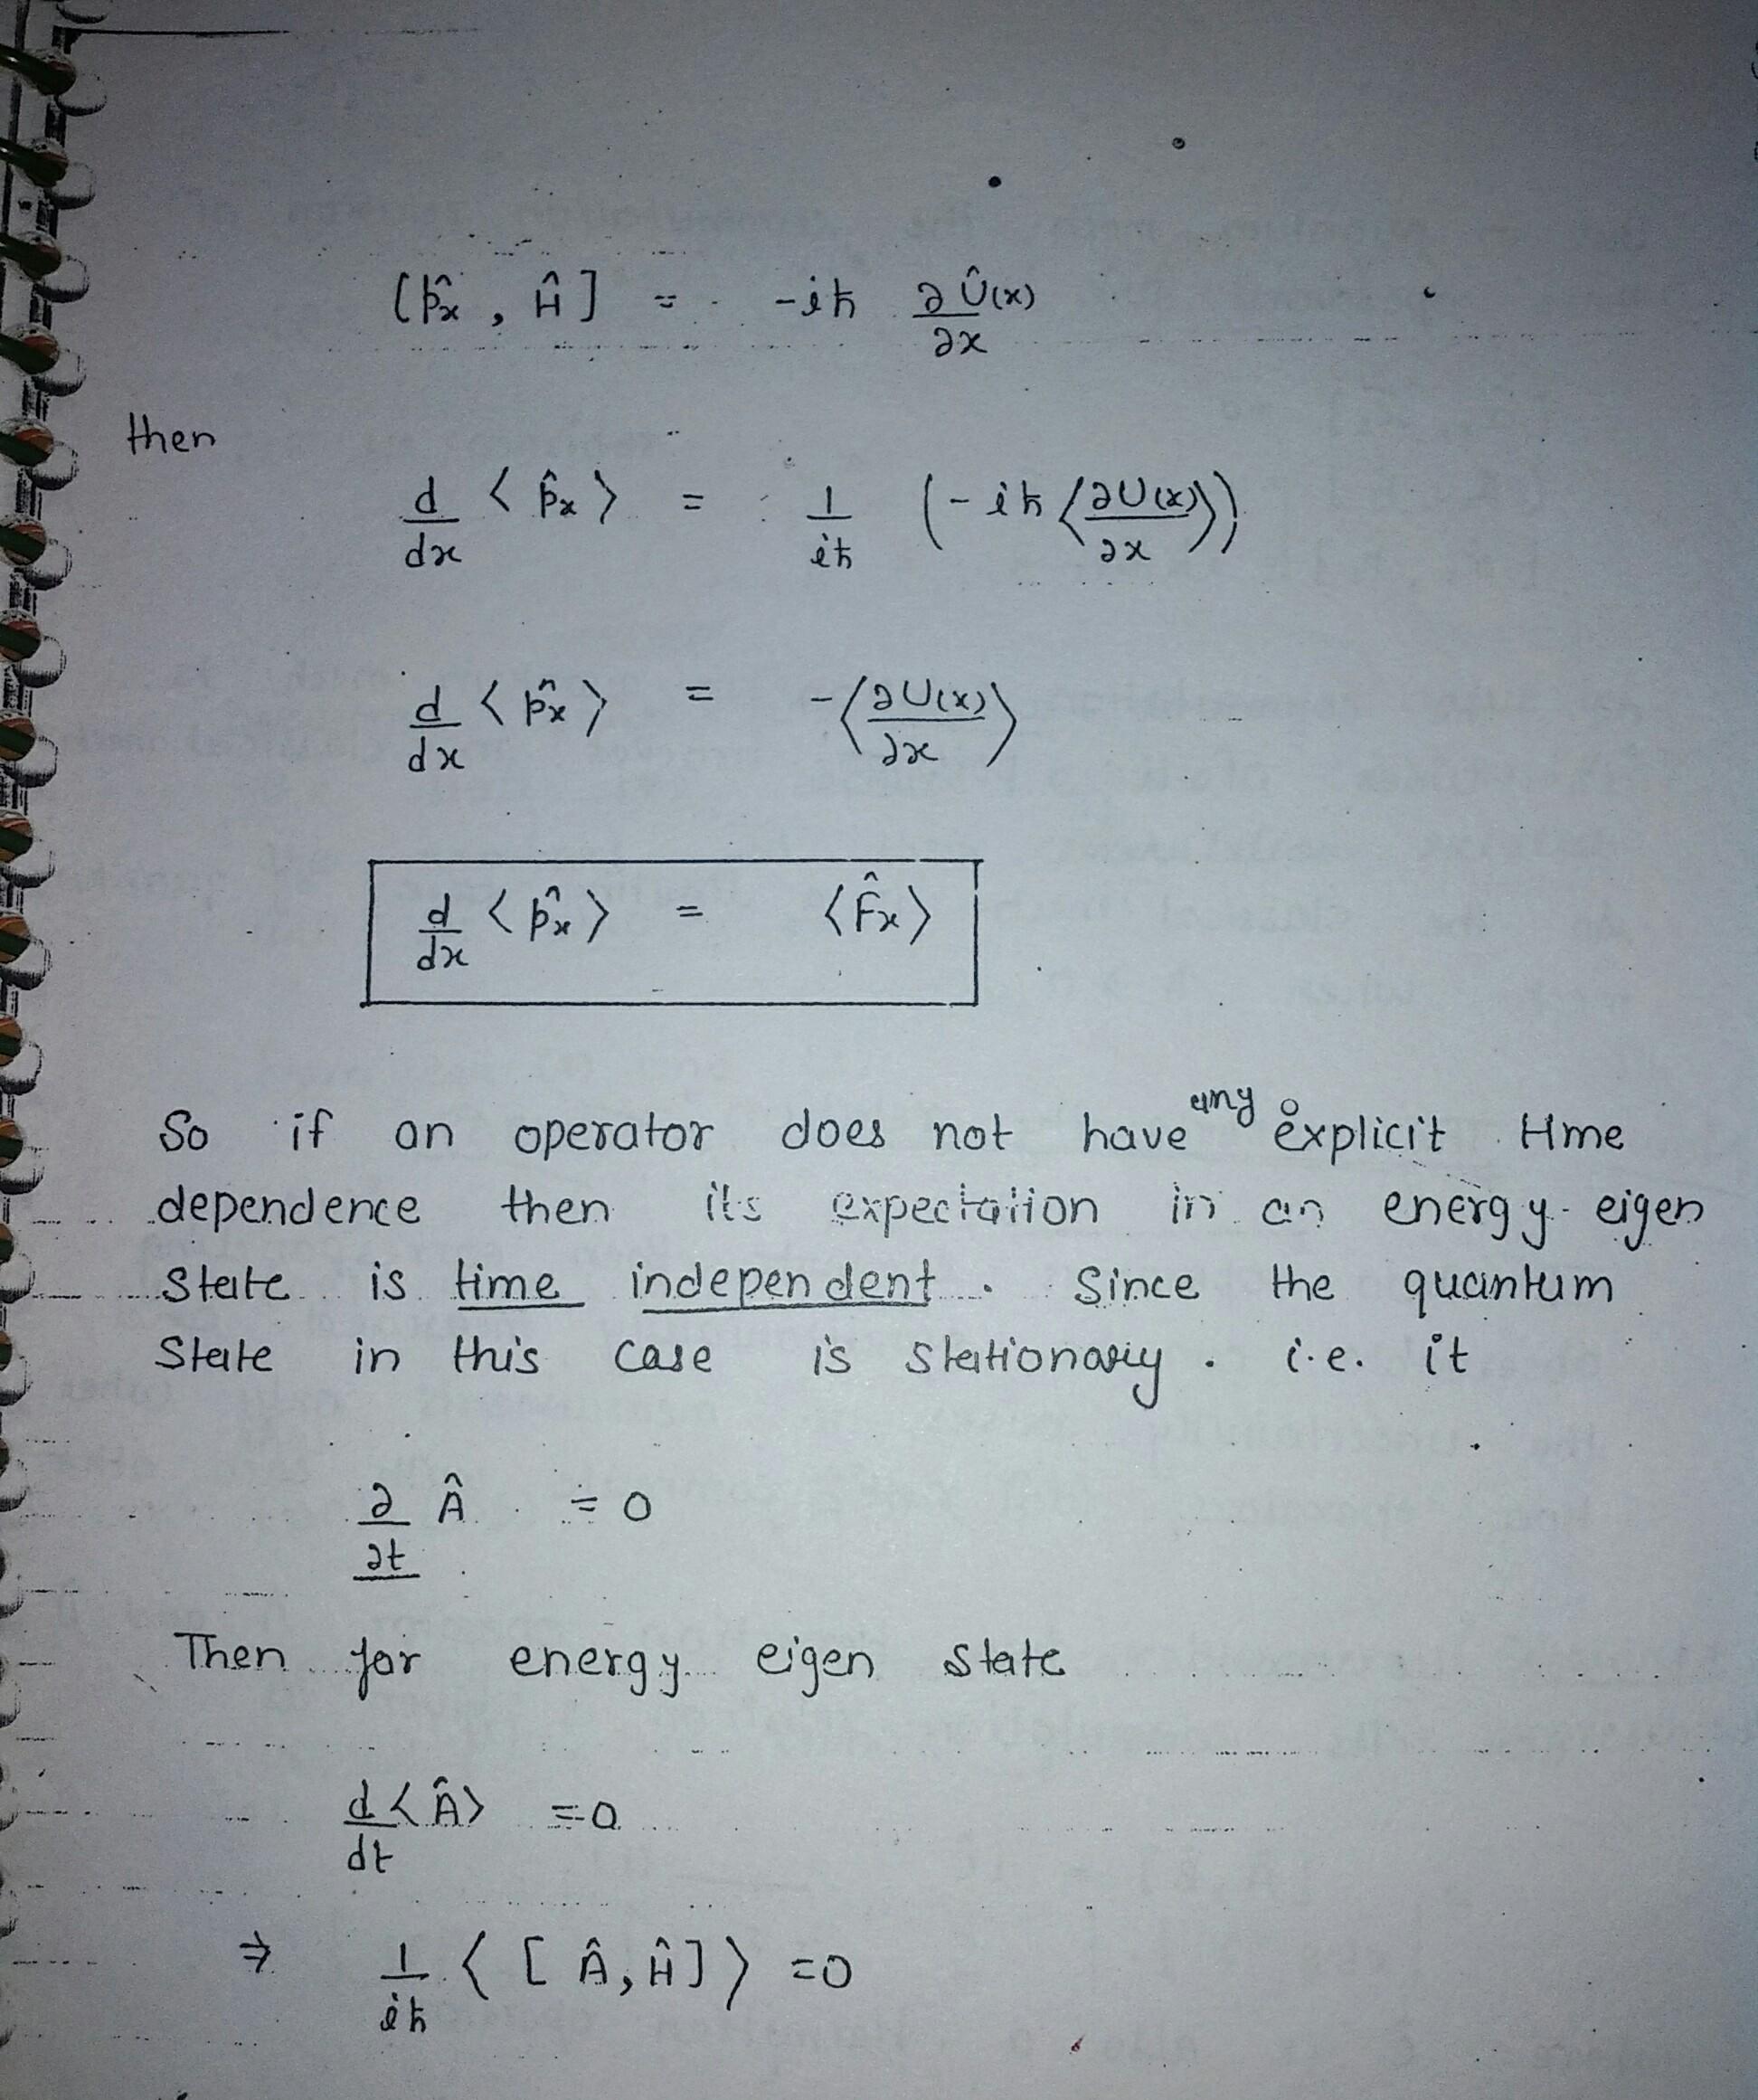 [p̂x , Ĥ] = -iħ ∂Û(x)/∂x
then
d/dx ⟨p̂x⟩ = 1/iħ (-iħ ⟨∂U(x)/∂x⟩)
d/dx ⟨p̂x⟩ = -⟨∂U(x)/∂x⟩
d/dx ⟨p̂x⟩ = ⟨F̂x⟩
So if an operator does not have any explicit time
dependence then its expectation in an energy-eigen
State is time independent. Since the quantum
State in this case is stationary. i.e. it
∂/∂t Â = 0
Then for energy eigen state
d⟨Â⟩/dt = 0
⇒ 1/iħ ⟨[Â, Ĥ]⟩ = 0